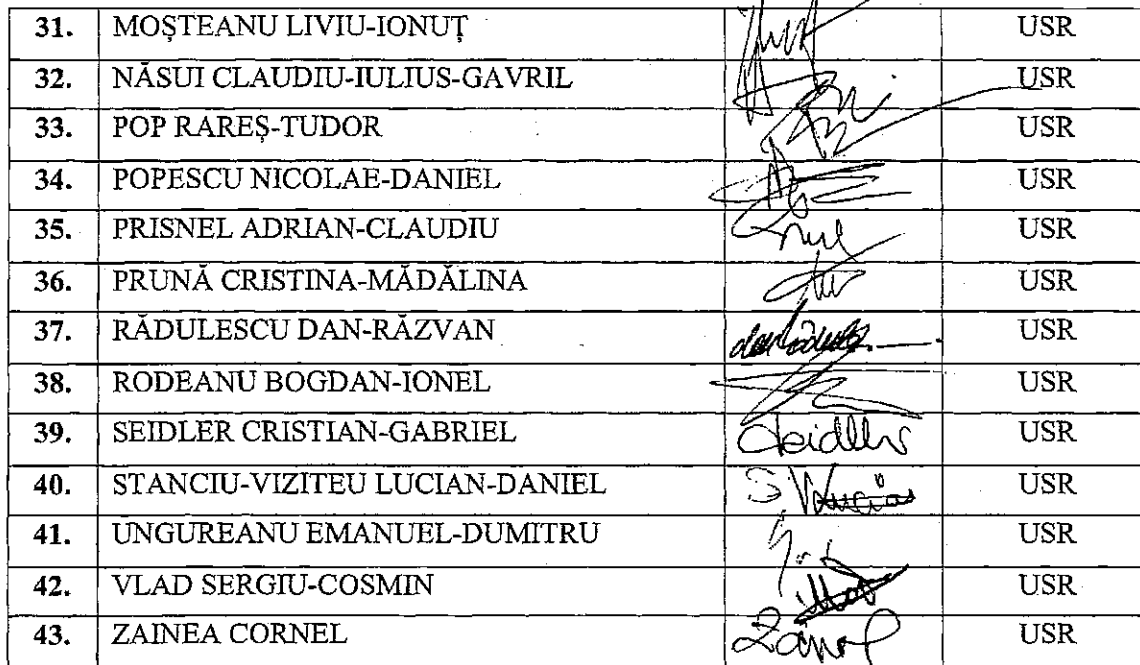 31. MOȘTEANU LIVIU-IONUȚ USR
32. NĂSUI CLAUDIU-IULIUS-GAVRIL USR
33. POP RAREȘ-TUDOR USR
34. POPESCU NICOLAE-DANIEL USR
35. PRISNEL ADRIAN-CLAUDIU USR
36. PRUNĂ CRISTINA-MĂDĂLINA USR
37. RĂDULESCU DAN-RĂZVAN USR
38. RODEANU BOGDAN-IONEL USR
39. SEIDLER CRISTIAN-GABRIEL USR
40. STANCIU-VIZITEU LUCIAN-DANIEL USR
41. UNGUREANU EMANUEL-DUMITRU USR
42. VLAD SERGIU-COSMIN USR
43. ZAINEA CORNEL USR